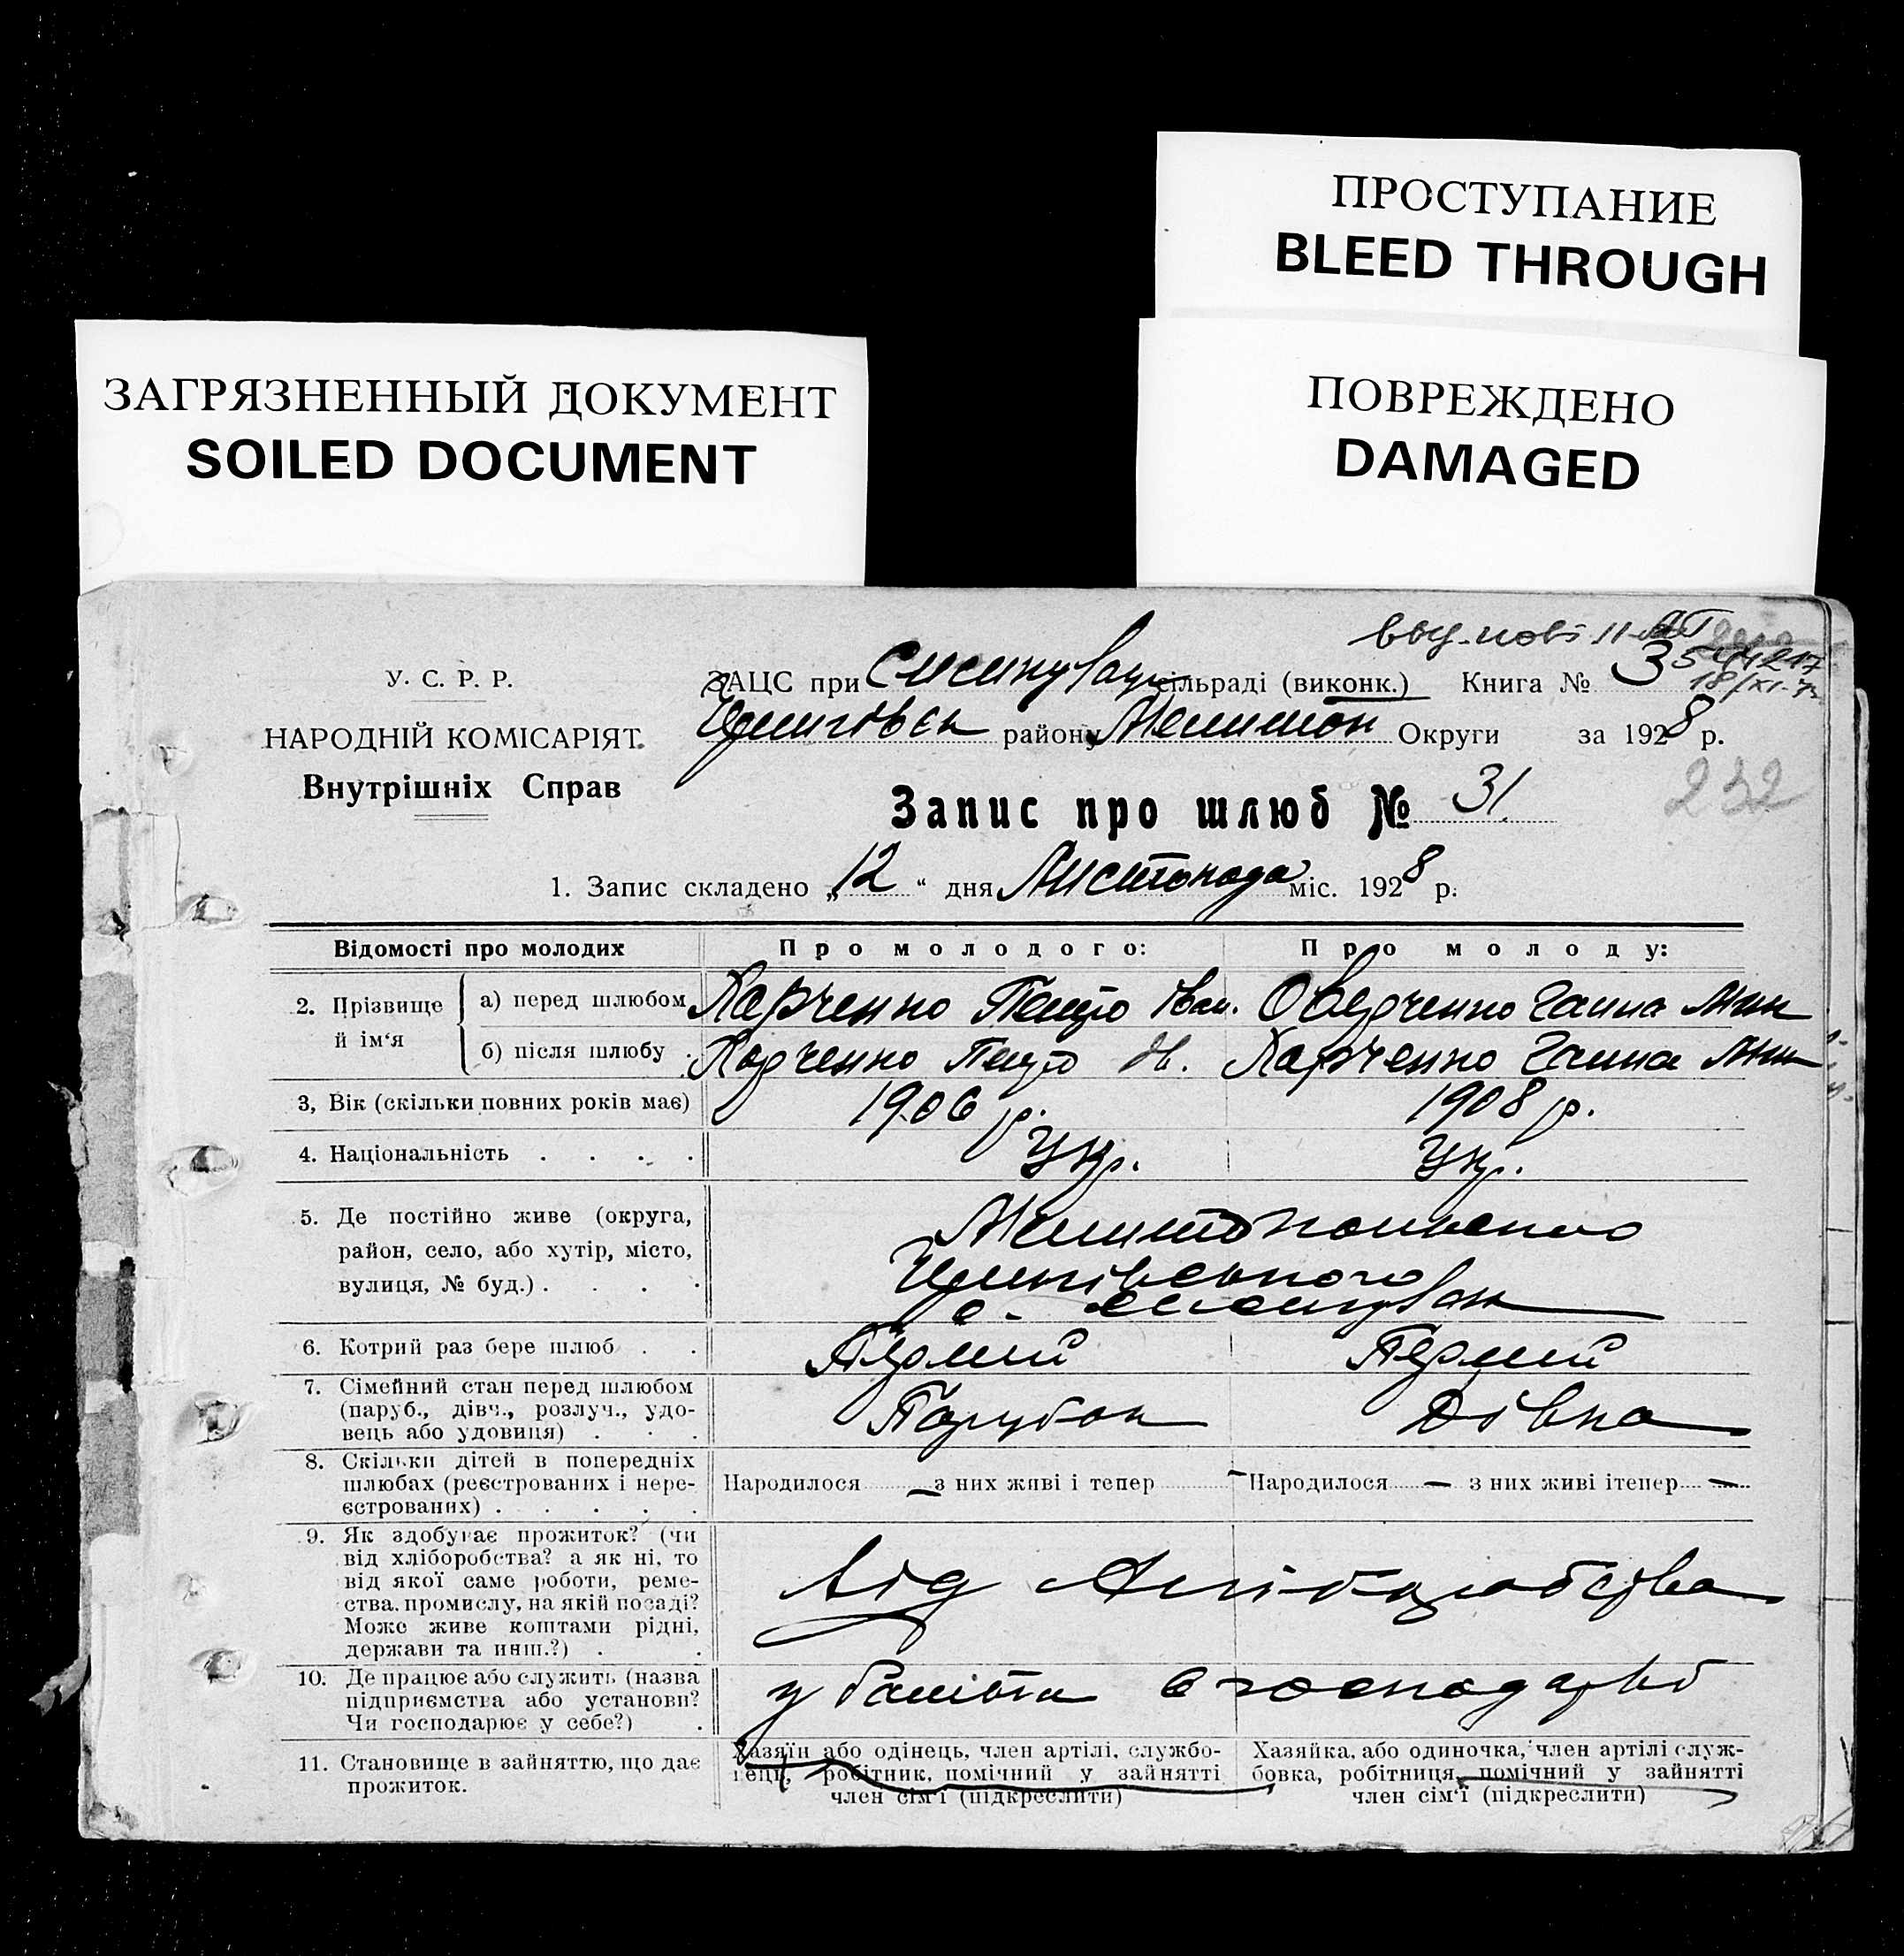 ПРОСТУПАНИЕ
BLEED THROUGH
ЗАГРЯЗНЕННЫЙ ДОКУМЕНТ
SOILED DOCUMENT
ПОВРЕЖДЕНО
DAMAGED
У. С. Р. Р.
НАРОДНІЙ КОМІСАРІЯТ
Внутрішніх Справ
ЗАЦС при сільраді (виконк.) Книга № 3
району Округи за 1928 р.
232
Запис про шлюб № 31.
1. Запис складено „12“ дня Листопада міс. 1928 р.
Відомості про молодих Про молодого: Про молоду:
2. Прізвище й ім‘я а) перед шлюбом Харченко Петро Іван. Оведченко Ганна
б) після шлюбу Харченко Петро Ів. Харченко Ганна
3, Вік (скільки повних років має) 1906 р. 1908 р.
4. Національність . . . . Укр. Укр.
5. Де постійно живе (округа,
район, село, або хутір, місто,
вулиця, № буд.) . . . .
6. Котрий раз бере шлюб . . Перший Перший
7. Сімейний стан перед шлюбом
(паруб., дівч., розлуч., удо-
вець або удовиця) . . . Парубок Дівка
8. Скільки дітей в попередніх
шлюбах (реєстрованих і нере-
єстрованих) . . . . . Народилося — з них живі і тепер — Народилося — з них живі ітепер —
9. Як здобуває прожиток? (чи
від хліборобства? а як ні, то
від якої саме роботи, реме-
ства, промислу, на якій посаді?
Може живе коштами рідні,
держави та инш.?) . . Від Хліборобства
10. Де працює або служить (назва
підприємства або установи?
Чи господарює у себе?) . у батьки в господарстві
11. Становище в зайняттю, що дає
прожиток.
Хазяїн або одінець, член артілі, службо-
вець, робітник, помічний у зайнятті
член сім‘ї (підкреслити)
Хазяйка, або одиночка, член артілі служ-
бовка, робітниця, помічний у зайнятті
член сім‘ї (підкреслити)